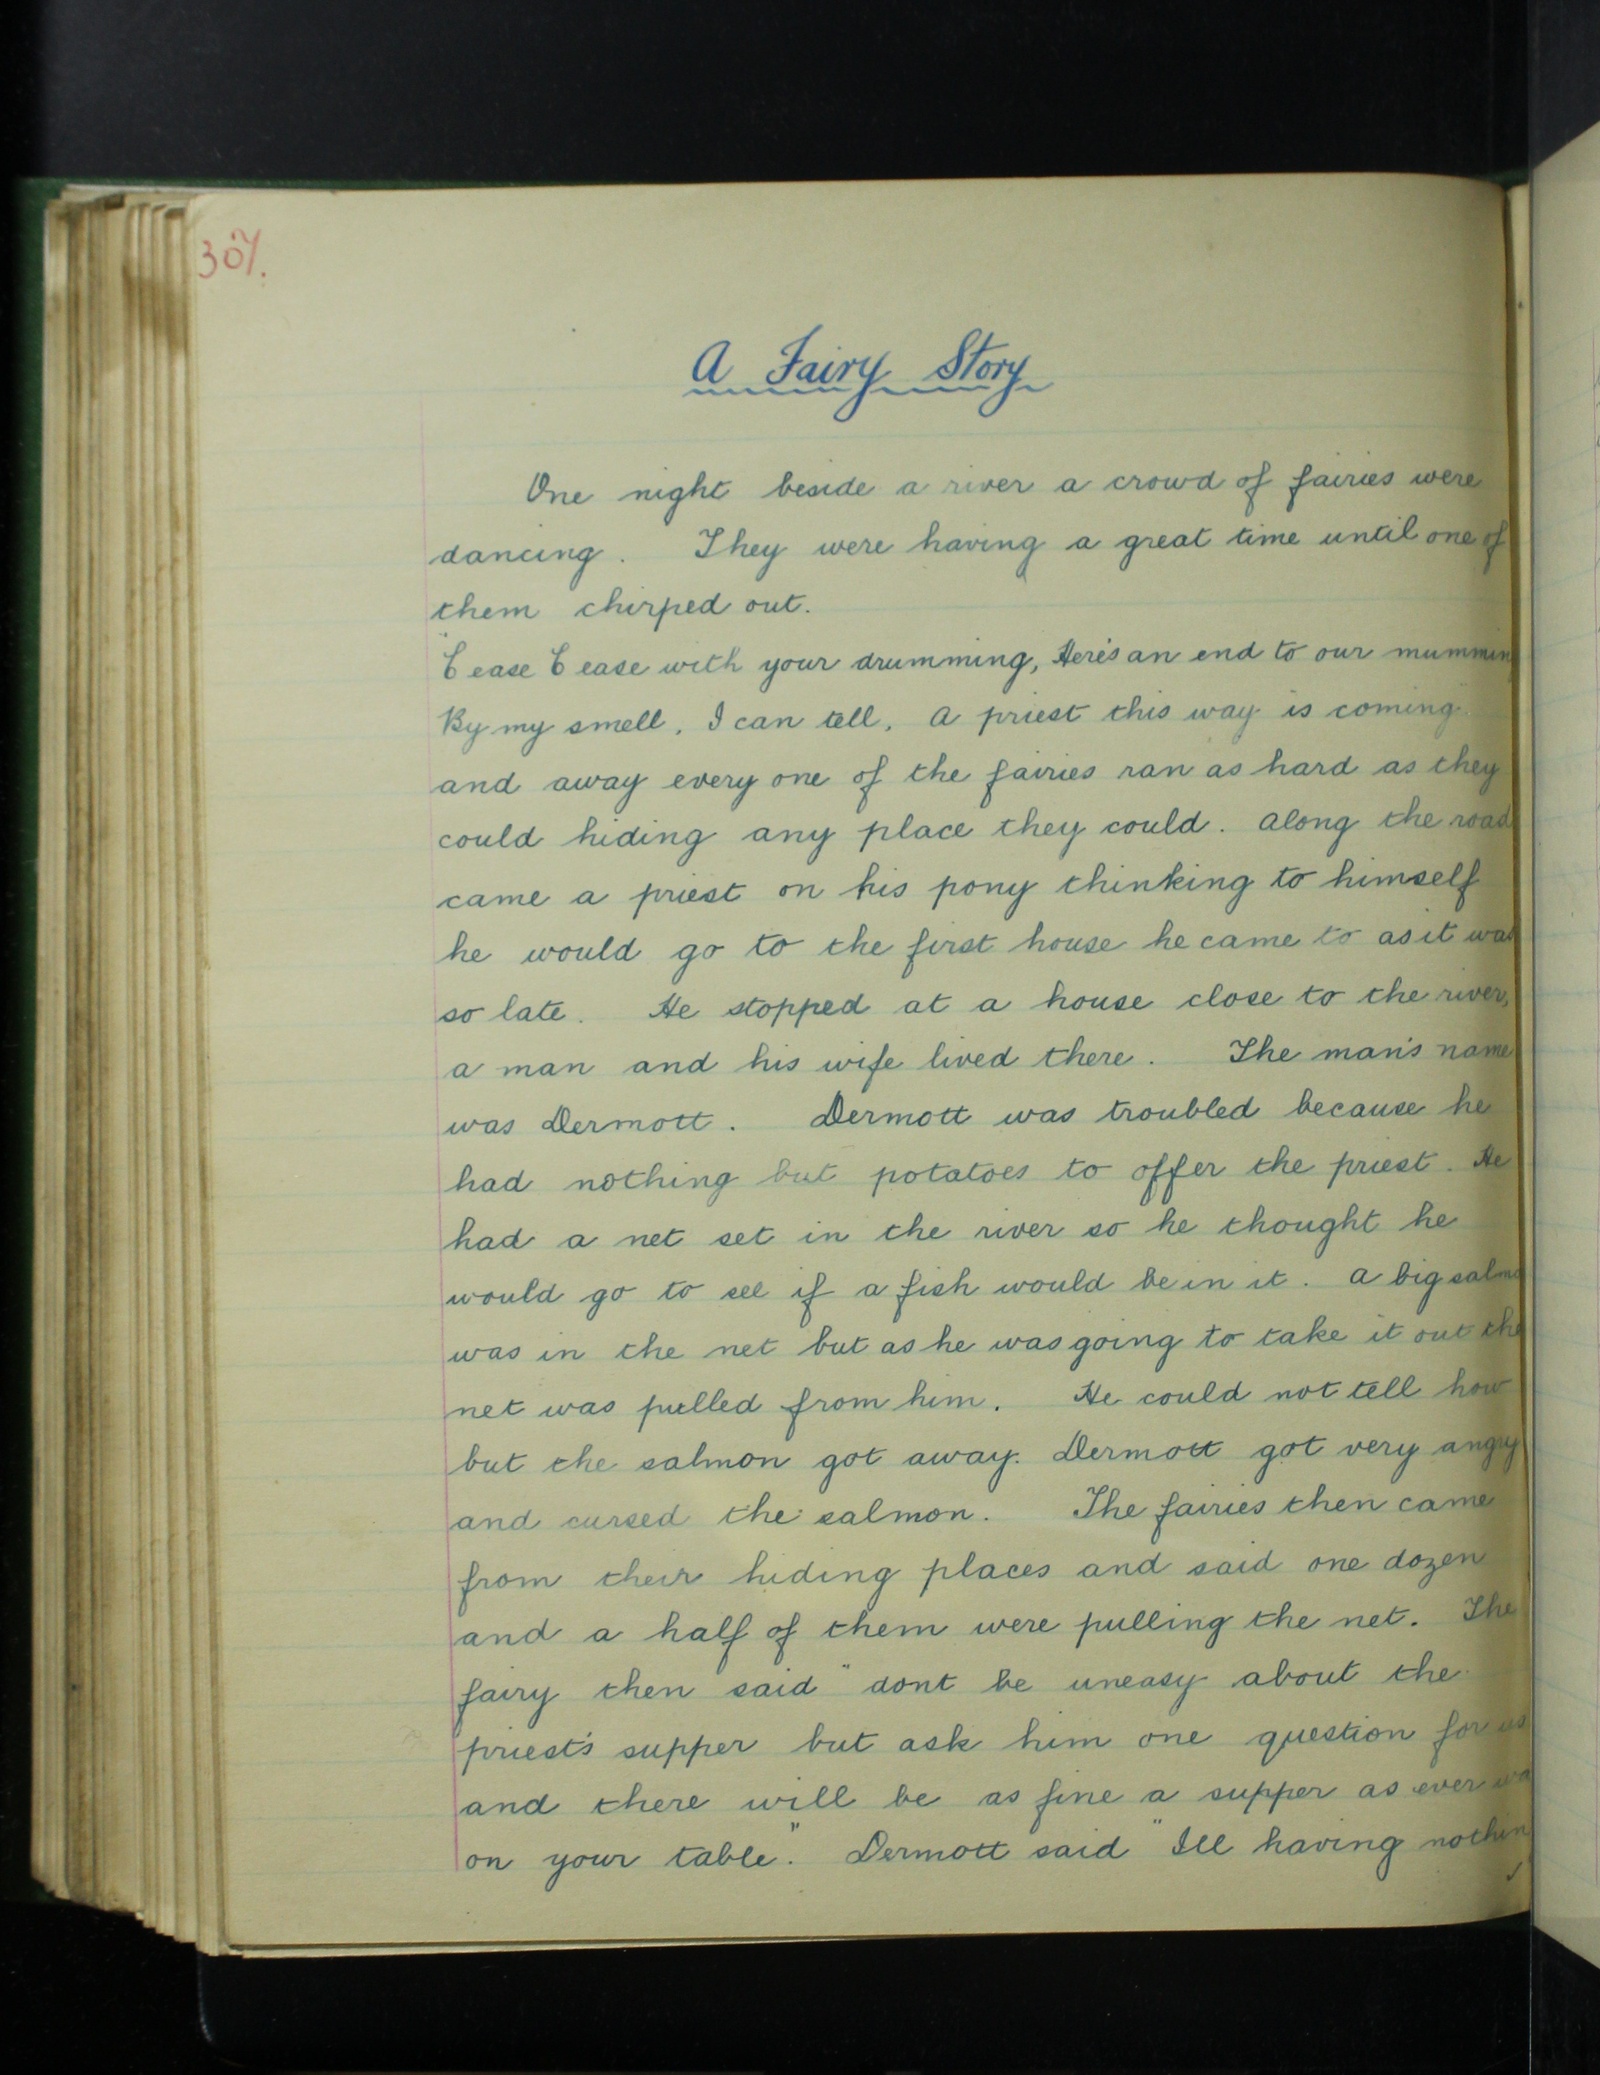 307.
A Fairy Story
One night beside a river a crowd of fairies were
dancing. They were having a great time until one of
them chirped out.
"Cease Cease with your drumming, Here's an end to our mummin
By my smell, I can tell, A priest this way is coming"
and away every one of the fairies ran as hard as they
could hiding any place they could. Along the road
came a priest on his pony thinking to himself
he would go to the first house he came to as it was
so late. He stopped at a house close to the river,
a man and his wife lived there. The man's name
was Dermott. Dermott was troubled because he
had nothing but potatoes to offer the priest. He
had a net set in the river so he thought he
would go to see if a fish would be in it. A big salmo
was in the net but as he was going to take it out the
net was pulled from him. He could not tell how
but the salmon got away. Dermott got very angry
and cursed the salmon. The fairies then came
from their hiding places and said one dozen
and a half of them were pulling the net. The
fairy then said "dont be uneasy about the
priest's supper but ask him one question for us
and there will be as fine a supper as ever wa
on your table." Dermott said "Ill having nothin